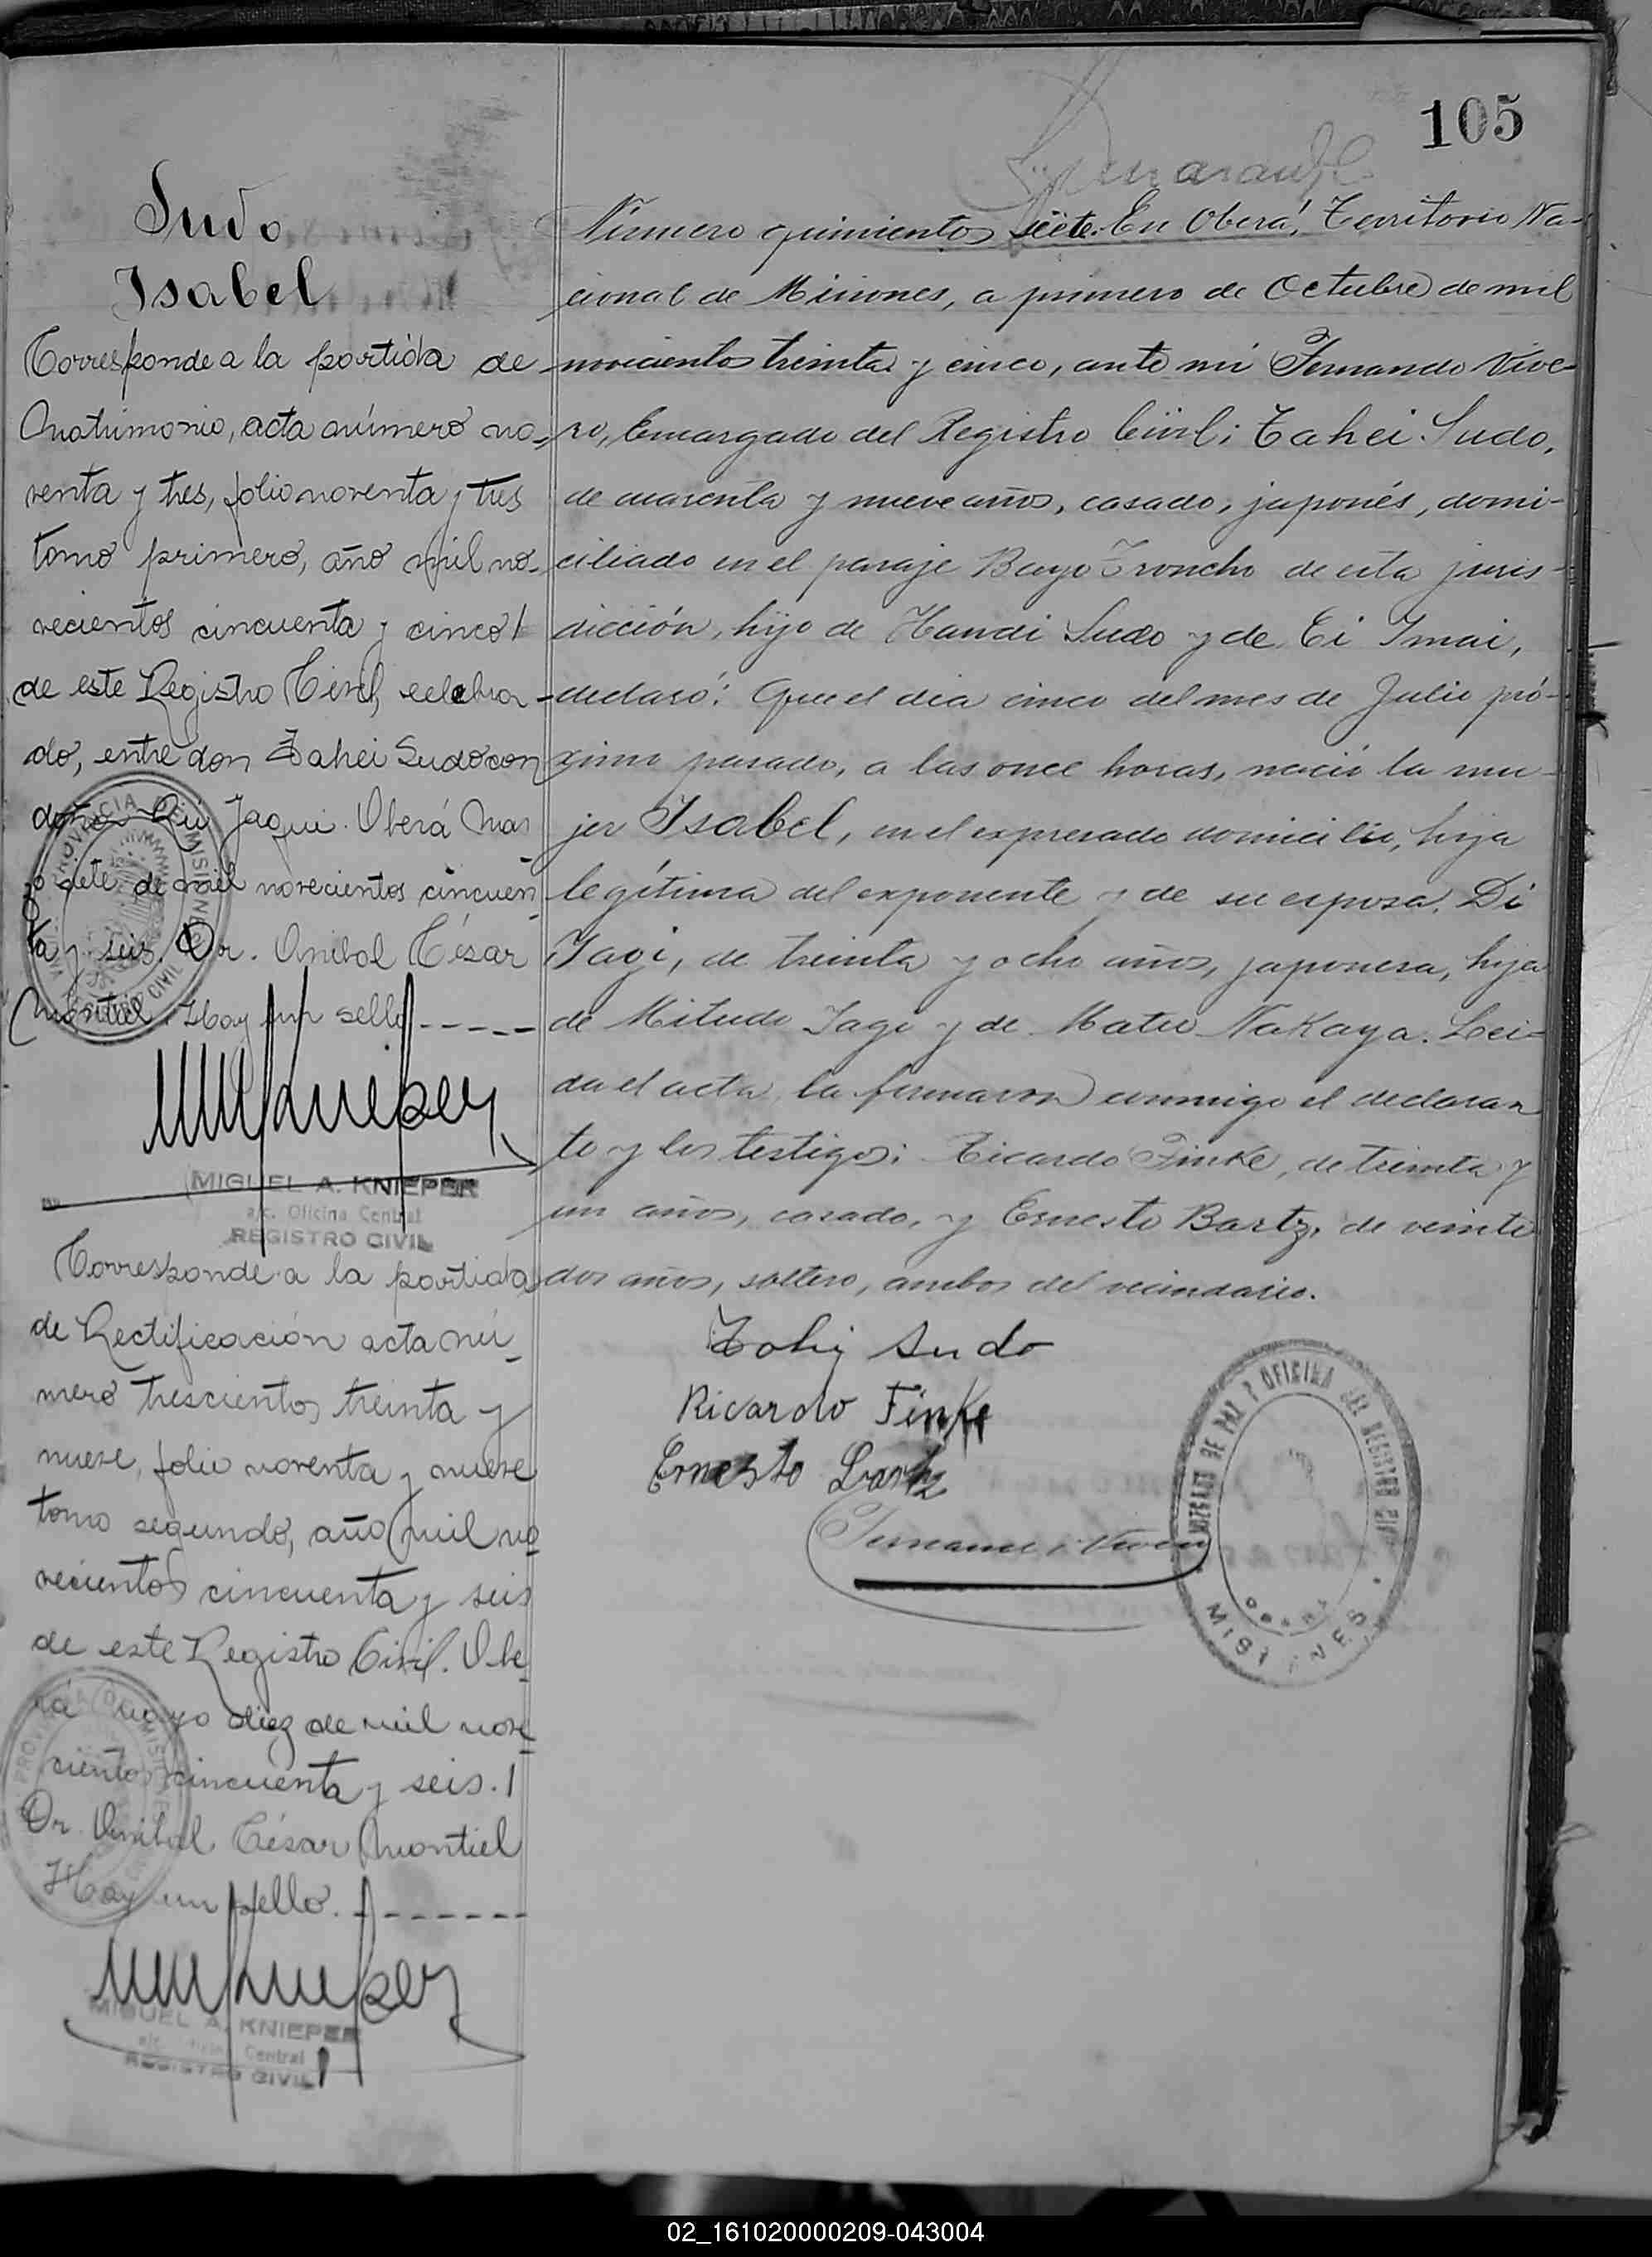 105
Sudo
Isabel
Corresponde a la partida de
Matrimonio, acta número no-
venta y tres, folio noventa y tres
tomo primero, año mil no-
vecientos cincuenta y cinco
de este Registro Civil, celebra-
do, entre don Tahei Sudo con
doña Jaqui. Oberá Mar
zo siete de mil novecientos cincuen
ta y seis. Dr. Anibal César
Montiel. Hay un sello-----
MIGUEL A. KNIEPER
a/c. Oficina Central
REGISTRO CIVIL
Corresponde a la partida
de Rectificación acta nú-
mero trescientos treinta y
nueve, folio noventa y nueve
tomo segundo, año mil no
vecientos cincuenta y seis
de este Registro Civil. Obe-
rá mayo diez de mil nove
cientos cincuenta y seis.
Dr. Anibal César Montiel
Hay un sello.-------
MIGUEL A. KNIEPER
a/c. Central
REGISTRO CIVIL
Número quinientos siete. En Oberá, Territorio Na-
cional de Misiones, a primero de Octubre de mil
novecientos treinta y cinco, ante mi Fernando Vive-
ro, Encargado del Registro Civil; Tahei Sudo,
de cuarenta y nueve años, casado, japonés, domi-
ciliado en el paraje Bayo Troncho de esta juris-
dicción, hijo de Handi Sudo y de Ei Imai,
declaró: Que el dia cinco del mes de Julio pró-
ximo pasado, a las once horas, nació la mu-
jer Isabel, en el expresado domicilio, hija
legítima del exponente y de su esposa Di
Yagi, de treinta y ocho años, japonesa, hija
de Mitudi Yagi y de Matu Nakaya. Lei-
da el acta, la firmaron conmigo el declaran
te y los testigos: Ricardo Finke, de treinta y
un años, casado, y Ernesto Bartz, de veinte
dos años, soltero, ambos del vecindario.
Sudo
Ricardo Finke
Ernesto Bartz
Fernando Vivero
JUZGADO DE PAZ Y OFICINA DEL REGISTRO CIVIL
OBERA
MISIONES
02_161020000209-043004